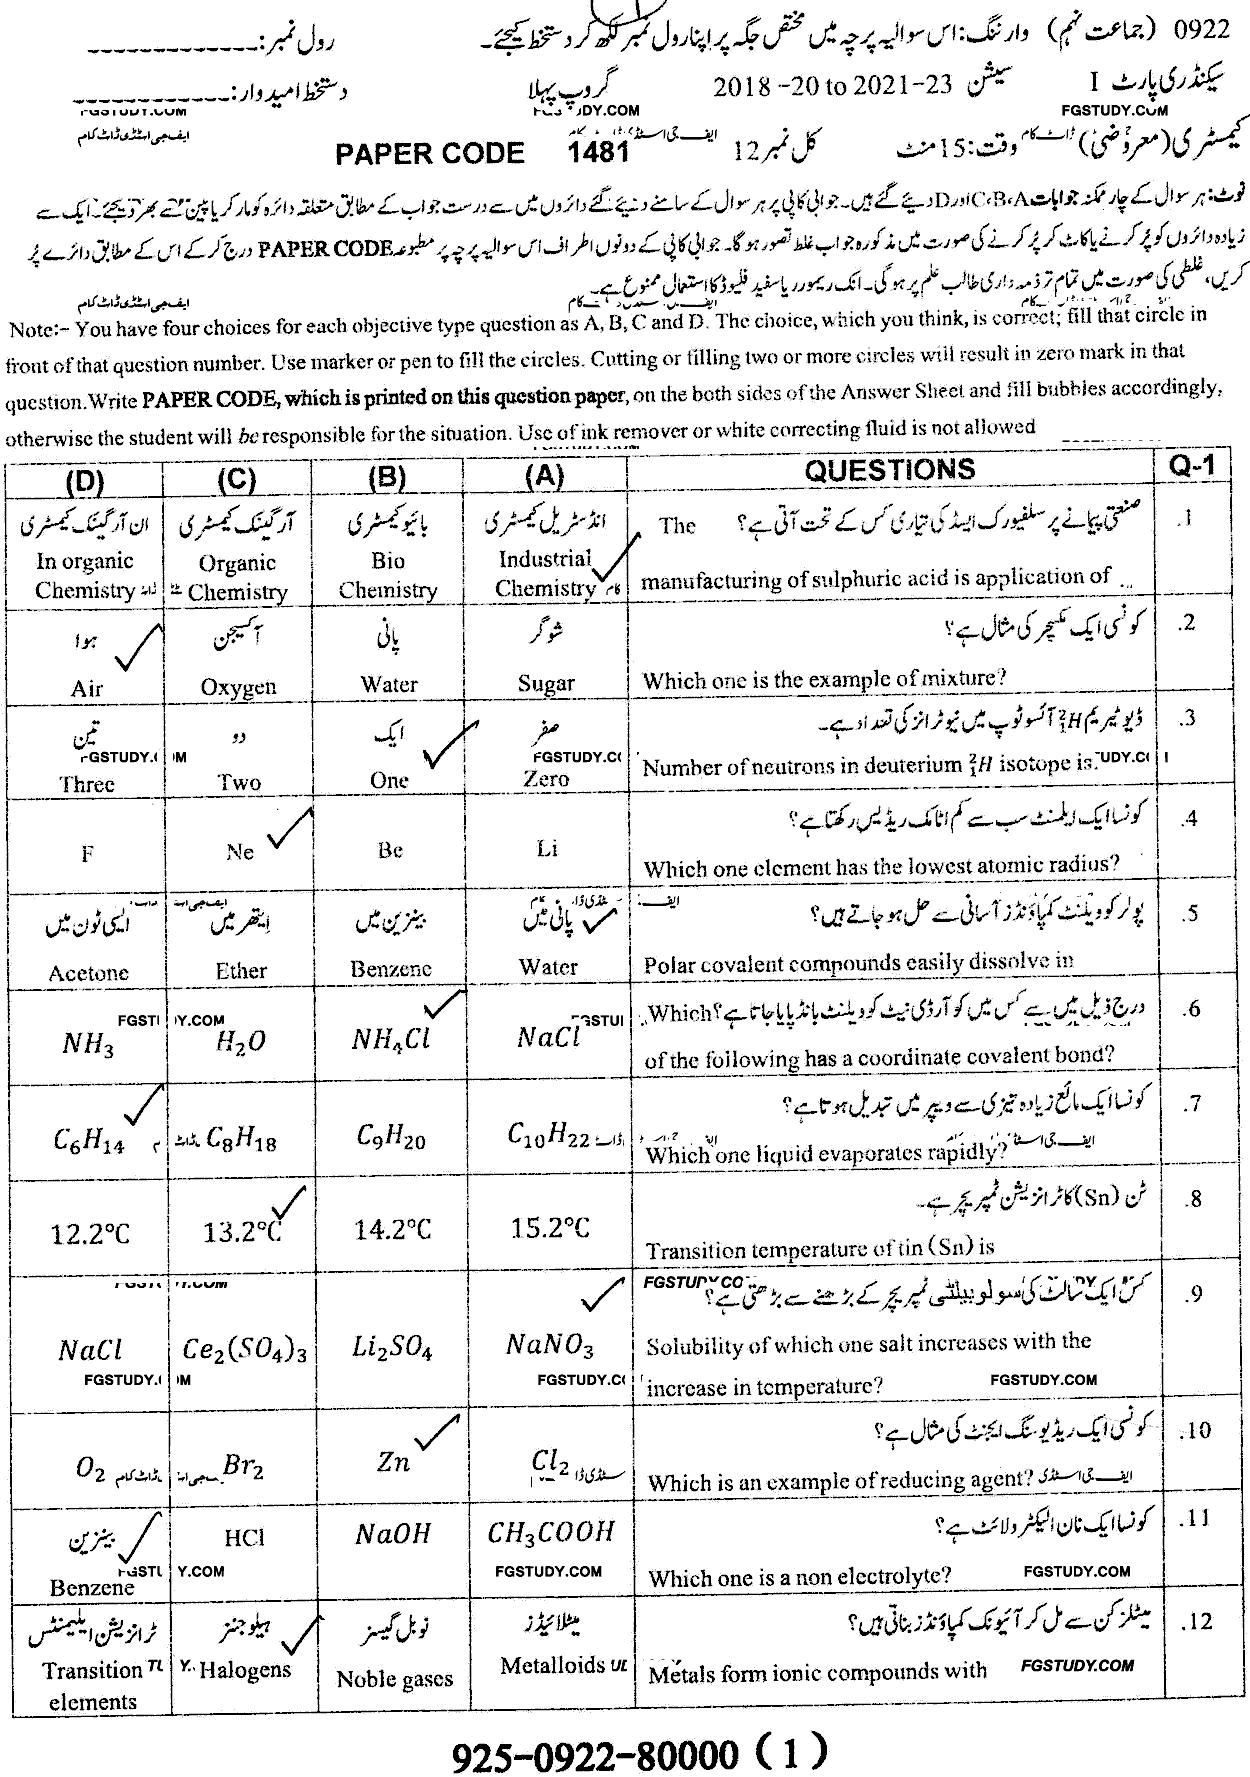 0922 (جماعت نہم) وارننگ: اس سوالیہ پرچہ میں مختص جگہ پر اپنا رول نمبر لکھ کر دستخط کیجئے۔ رول نمبر: ____________
سیکنڈری پارٹ I سیشن 2018 -20 to 2021-23 گروپ پہلا دستخط امیدوار: ____________
FGSTUDY.COM FGSTUDY.COM
کیمسٹری (معروضی) وقت: 15 منٹ کل نمبر 12 PAPER CODE 1481 ایف جی اسٹڈی ڈاٹ کام
نوٹ: ہر سوال کے چار ممکنہ جوابات A،B،C اور D دیئے گئے ہیں۔ جوابی کاپی پر ہر سوال کے سامنے دیئے گئے دائروں میں سے درست جواب کے مطابق متعلقہ دائرہ کو مارکر یا پین سے بھر دیجئے۔ ایک سے
زیادہ دائروں کو پُر کرنے یا کاٹ کر پُر کرنے کی صورت میں مذکورہ جواب غلط تصور ہوگا۔ جوابی کاپی کے دونوں اطراف اس سوالیہ پرچہ پر مطبوعہ PAPER CODE درج کر کے اس کے مطابق دائرے پُر
کریں، غلطی کی صورت میں تمام تر ذمہ داری طالب علم پر ہوگی۔ انک ریموور یا سفید فلیوڈ کا استعمال ممنوع ہے۔
ایف جی اسٹڈی ڈاٹ کام
Note:- You have four choices for each objective type question as A, B, C and D. The choice, which you think, is correct; fill that circle in
front of that question number. Use marker or pen to fill the circles. Cutting or filling two or more circles will result in zero mark in that
question. Write PAPER CODE, which is printed on this question paper, on the both sides of the Answer Sheet and fill bubbles accordingly,
otherwise the student will be responsible for the situation. Use of ink remover or white correcting fluid is not allowed
(D) (C) (B) (A) QUESTIONS Q-1
ان آرگینک کیمسٹری آرگینک کیمسٹری بائیو کیمسٹری انڈسٹریل کیمسٹری The صنعتی پیمانے پر سلفیورک ایسڈ کی تیاری کس کے تحت آتی ہے؟ .1
In organic Organic Bio Industrial
Chemistry Chemistry Chemistry Chemistry manufacturing of sulphuric acid is application of ...
ہوا آکسیجن پانی شوگر کونسی ایک مکسچر کی مثال ہے؟ .2
Air Oxygen Water Sugar Which one is the example of mixture?
تین دو ایک صفر ڈیوٹیریم ²₁H آئسوٹوپ میں نیوٹرانز کی تعداد ہے۔ .3
Three Two One Zero Number of neutrons in deuterium ²₁H isotope is.
کونسا ایک ایلیمنٹ سب سے کم اٹامک ریڈیس رکھتا ہے؟ .4
F Ne Be Li Which one element has the lowest atomic radius?
ایسی ٹون میں ایتھر میں بینزین میں پانی میں پولر کوویلنٹ کمپاؤنڈز آسانی سے حل ہو جاتے ہیں؟ .5
Acetone Ether Benzene Water Polar covalent compounds easily dissolve in
Which درج ذیل میں سے کس میں کوآرڈی نیٹ کوویلنٹ بانڈ پایا جاتا ہے؟ .6
NH₃ H₂O NH₄Cl NaCl of the following has a coordinate covalent bond?
کونسا ایک مائع زیادہ تیزی سے ویپر میں تبدیل ہوتا ہے؟ .7
C₆H₁₄ C₈H₁₈ C₉H₂₀ C₁₀H₂₂ Which one liquid evaporates rapidly?
ٹن (Sn) کا ٹرانزیشن ٹمپریچر ہے۔ .8
12.2°C 13.2°C 14.2°C 15.2°C Transition temperature of tin (Sn) is
کس ایک سالٹ کی سولوبیلٹی ٹمپریچر کے بڑھنے سے بڑھتی ہے؟ .9
NaCl Ce₂(SO₄)₃ Li₂SO₄ NaNO₃ Solubility of which one salt increases with the
increase in temperature? FGSTUDY.COM
کونسی ایک ریڈیوسنگ ایجنٹ کی مثال ہے؟ .10
O₂ Br₂ Zn Cl₂ Which is an example of reducing agent?
بینزین HCl NaOH CH₃COOH کونسا ایک نان الیکٹرولائٹ ہے؟ .11
Benzene FGSTUDY.COM Which one is a non electrolyte? FGSTUDY.COM
ٹرانزیشن ایلیمنٹس ہیلوجنز نوبل گیسز میٹلائیڈز میٹلز کن سے مل کر آئیونک کمپاؤنڈز بناتی ہیں؟ .12
Transition Halogens Noble gases Metalloids Metals form ionic compounds with FGSTUDY.COM
elements
925-0922-80000 (1)